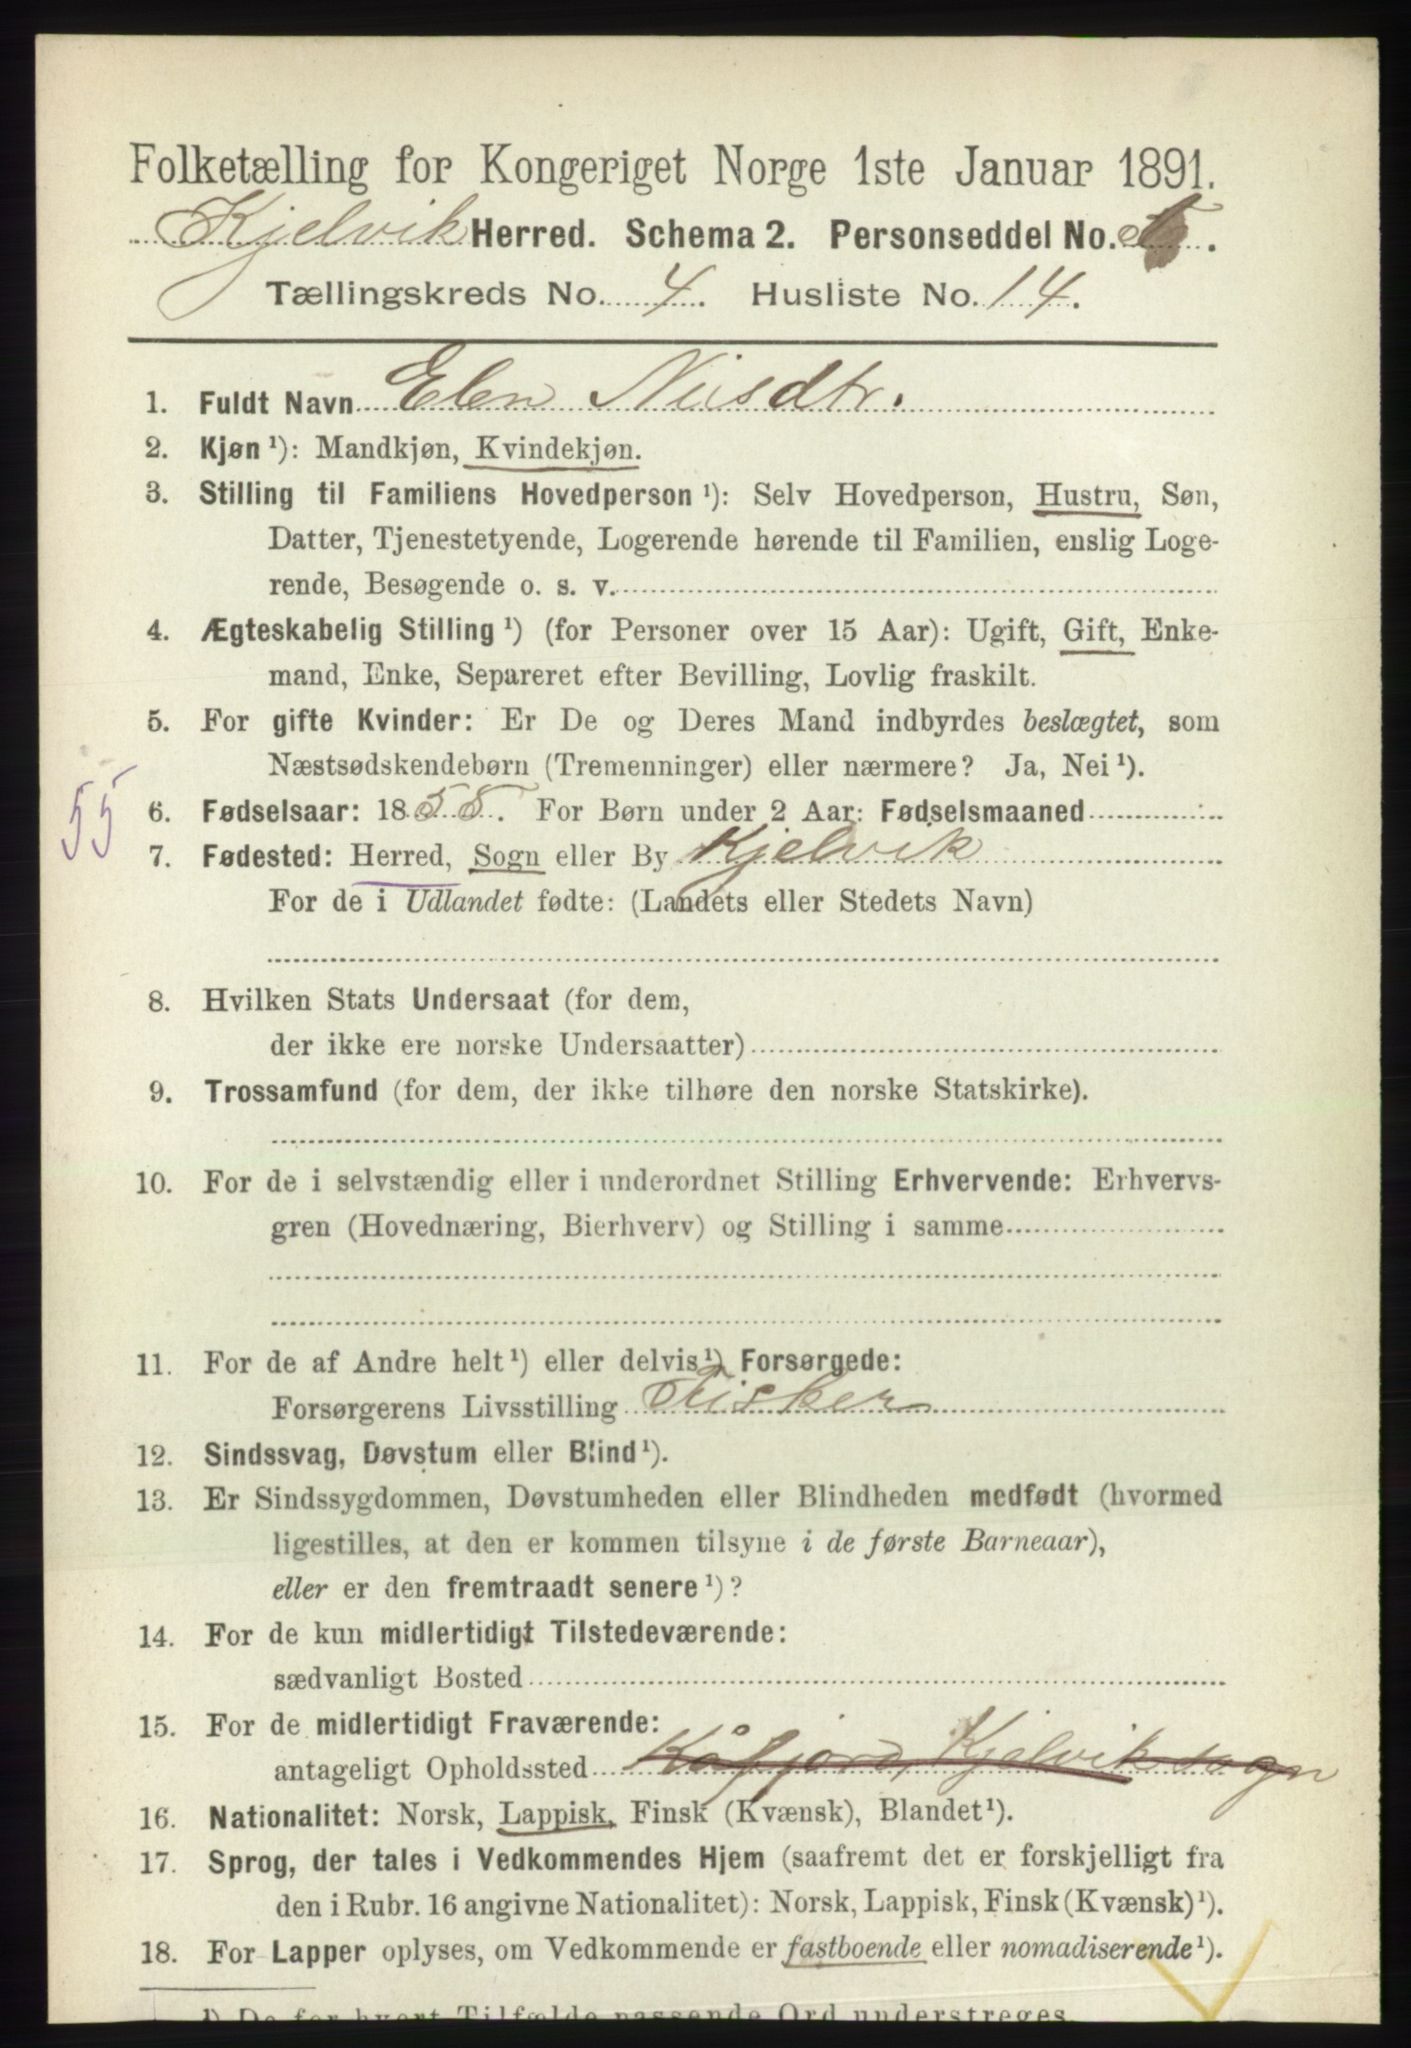 Folketælling for Kongeriget Norge 1ste Januar 1891.
Kjelvik Herred. Schema 2. Personseddel No.
Tællingskreds No. 4. Husliste No. 14.
1. Fuldt Navn Elen Nisdtr.
2. Kjøn ¹): Mandkjøn, Kvindekjøn.
3. Stilling til Familiens Hovedperson ¹): Selv Hovedperson, Hustru, Søn,
Datter, Tjenestetyende, Logerende hørende til Familien, enslig Loge-
rende, Besøgende o. s. v.
4. Ægteskabelig Stilling ¹) (for Personer over 15 Aar): Ugift, Gift, Enke-
mand, Enke, Separeret efter Bevilling, Lovlig fraskilt.
5. For gifte Kvinder: Er De og Deres Mand indbyrdes beslægtet, som
Næstsødskendebørn (Tremenninger) eller nærmere? Ja, Nei ¹).
55
6. Fødselsaar: 1855. For Børn under 2 Aar: Fødselsmaaned
7. Fødested: Herred, Sogn eller By Kjelvik
For de i Udlandet fødte: (Landets eller Stedets Navn)
8. Hvilken Stats Undersaat (for dem,
der ikke ere norske Undersaatter)
9. Trossamfund (for dem, der ikke tilhøre den norske Statskirke).
10. For de i selvstændig eller i underordnet Stilling Erhvervende: Erhvervs-
gren (Hovednæring, Bierhverv) og Stilling i samme
11. For de af Andre helt ¹) eller delvis ¹) Forsørgede:
Forsørgerens Livsstilling Fisker
12. Sindssvag, Døvstum eller Blind ¹).
13. Er Sindssygdommen, Døvstumheden eller Blindheden medfødt (hvormed
ligestilles, at den er kommen tilsyne i de første Barneaar),
eller er den fremtraadt senere ¹)?
14. For de kun midlertidigt Tilstedeværende:
sædvanligt Bosted
15. For de midlertidigt Fraværende:
antageligt Opholdssted Kåfjord, Kjelvik sogn
16. Nationalitet: Norsk, Lappisk, Finsk (Kvænsk), Blandet ¹).
17. Sprog, der tales i Vedkommendes Hjem (saafremt det er forskjelligt fra
den i Rubr. 16 angivne Nationalitet): Norsk, Lappisk, Finsk (Kvænsk) ¹).
18. For Lapper oplyses, om Vedkommende er fastboende eller nomadiserende ¹).
¹) De for hvert Tilfælde passende Ord understreges.